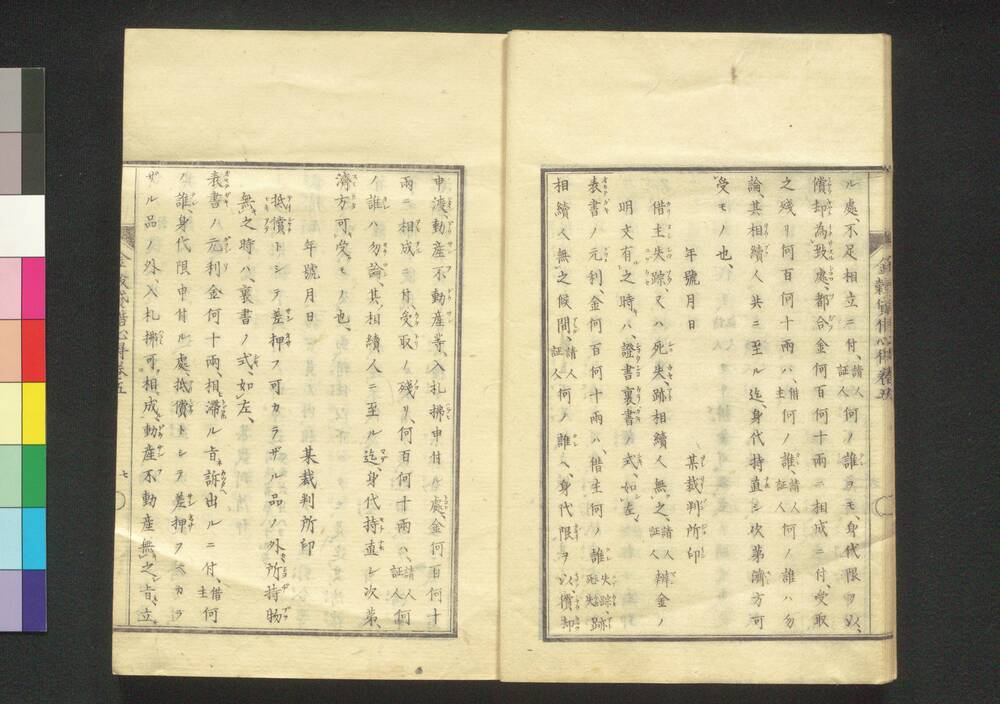 ル處、不足相立ニ付、請人証人何ノ誰ヲモ、身代限ヲ以、
償却為致處、都合金何百何十兩ニ相成ニ付、受取
之殘リ何百何十兩ハ、借主何ノ誰、請人証人何ノ誰ハ勿
論、其相續人共ニ至ル迄、身代持直シ次第濟方可
受モノ也、
年號月日
某裁判所印
借主失踪又ハ死失、跡相續人無之、請人証人辨金ノ
明文有之時ハ、證書裏書ノ式、如左、
表書ノ元利、金何百何十兩ハ、借主何ノ誰失踪死失、跡
相續人無之候間、請人証人何ノ誰ヘ、身代限ヲ以償却、
申渡、動産不動産等、入札拂申付ル處、金何百何十
兩ニ相成ニ付、受取ノ殘リ、何百何十兩ハ、請人証人何
ノ誰ハ勿論、其相續人ニ至ル迄、身代持直シ次第、
濟方可受モノ也、
年號月日
某裁判所印
抵償トシテ差押フ可カラザル品ノ外、所持物
無之時ハ、裏書ノ式、如左、
表書ハ元利金何十兩、相滯ル旨訴出ルニ付、借主何
ノ誰、身代限申付ル處抵償トシテ差押フベカラ
ザル品ノ外、入札拂可相成、動産不動産無之旨、立
七